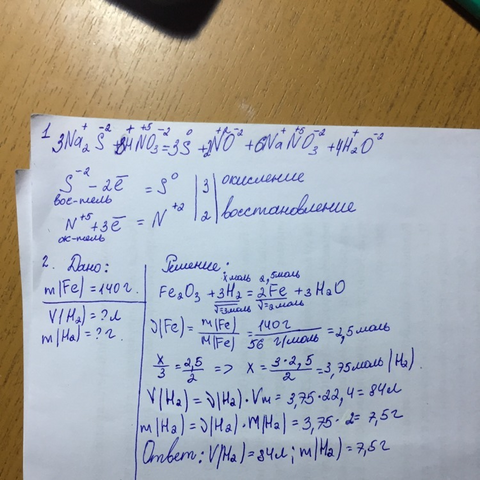 1 3Na₂⁺S⁻² + 8H⁺N⁺⁵O₃⁻² = 3S⁰ + 2N⁺²O⁻² + 6Na⁺N⁺⁵O₃⁻² + 4H₂⁺O⁻²
S⁻² - 2ē = S⁰ | 3 | окисление
вос-тель
N⁺⁵ + 3ē = N⁺² | 2 | восстановление
ок-тель
2. Дано:
m(Fe) = 140 г.
V(H₂) = ? л
m(H₂) = ? г.
Решение:
x моль 2,5 моль
Fe₂O₃ + 3H₂ = 2Fe + 3H₂O
ν=3моль ν=2моль
ν(Fe) = m(Fe)/M(Fe) = 140 г/56 г/моль = 2,5 моль
x/3 = 2,5/2 => x = 3·2,5/2 = 3,75 моль (H₂).
V(H₂) = ν(H₂)·Vm = 3,75·22,4 = 84 л
m(H₂) = ν(H₂)·M(H₂) = 3,75·2 = 7,5 г
Ответ: V(H₂) = 84 л; m(H₂) = 7,5 г